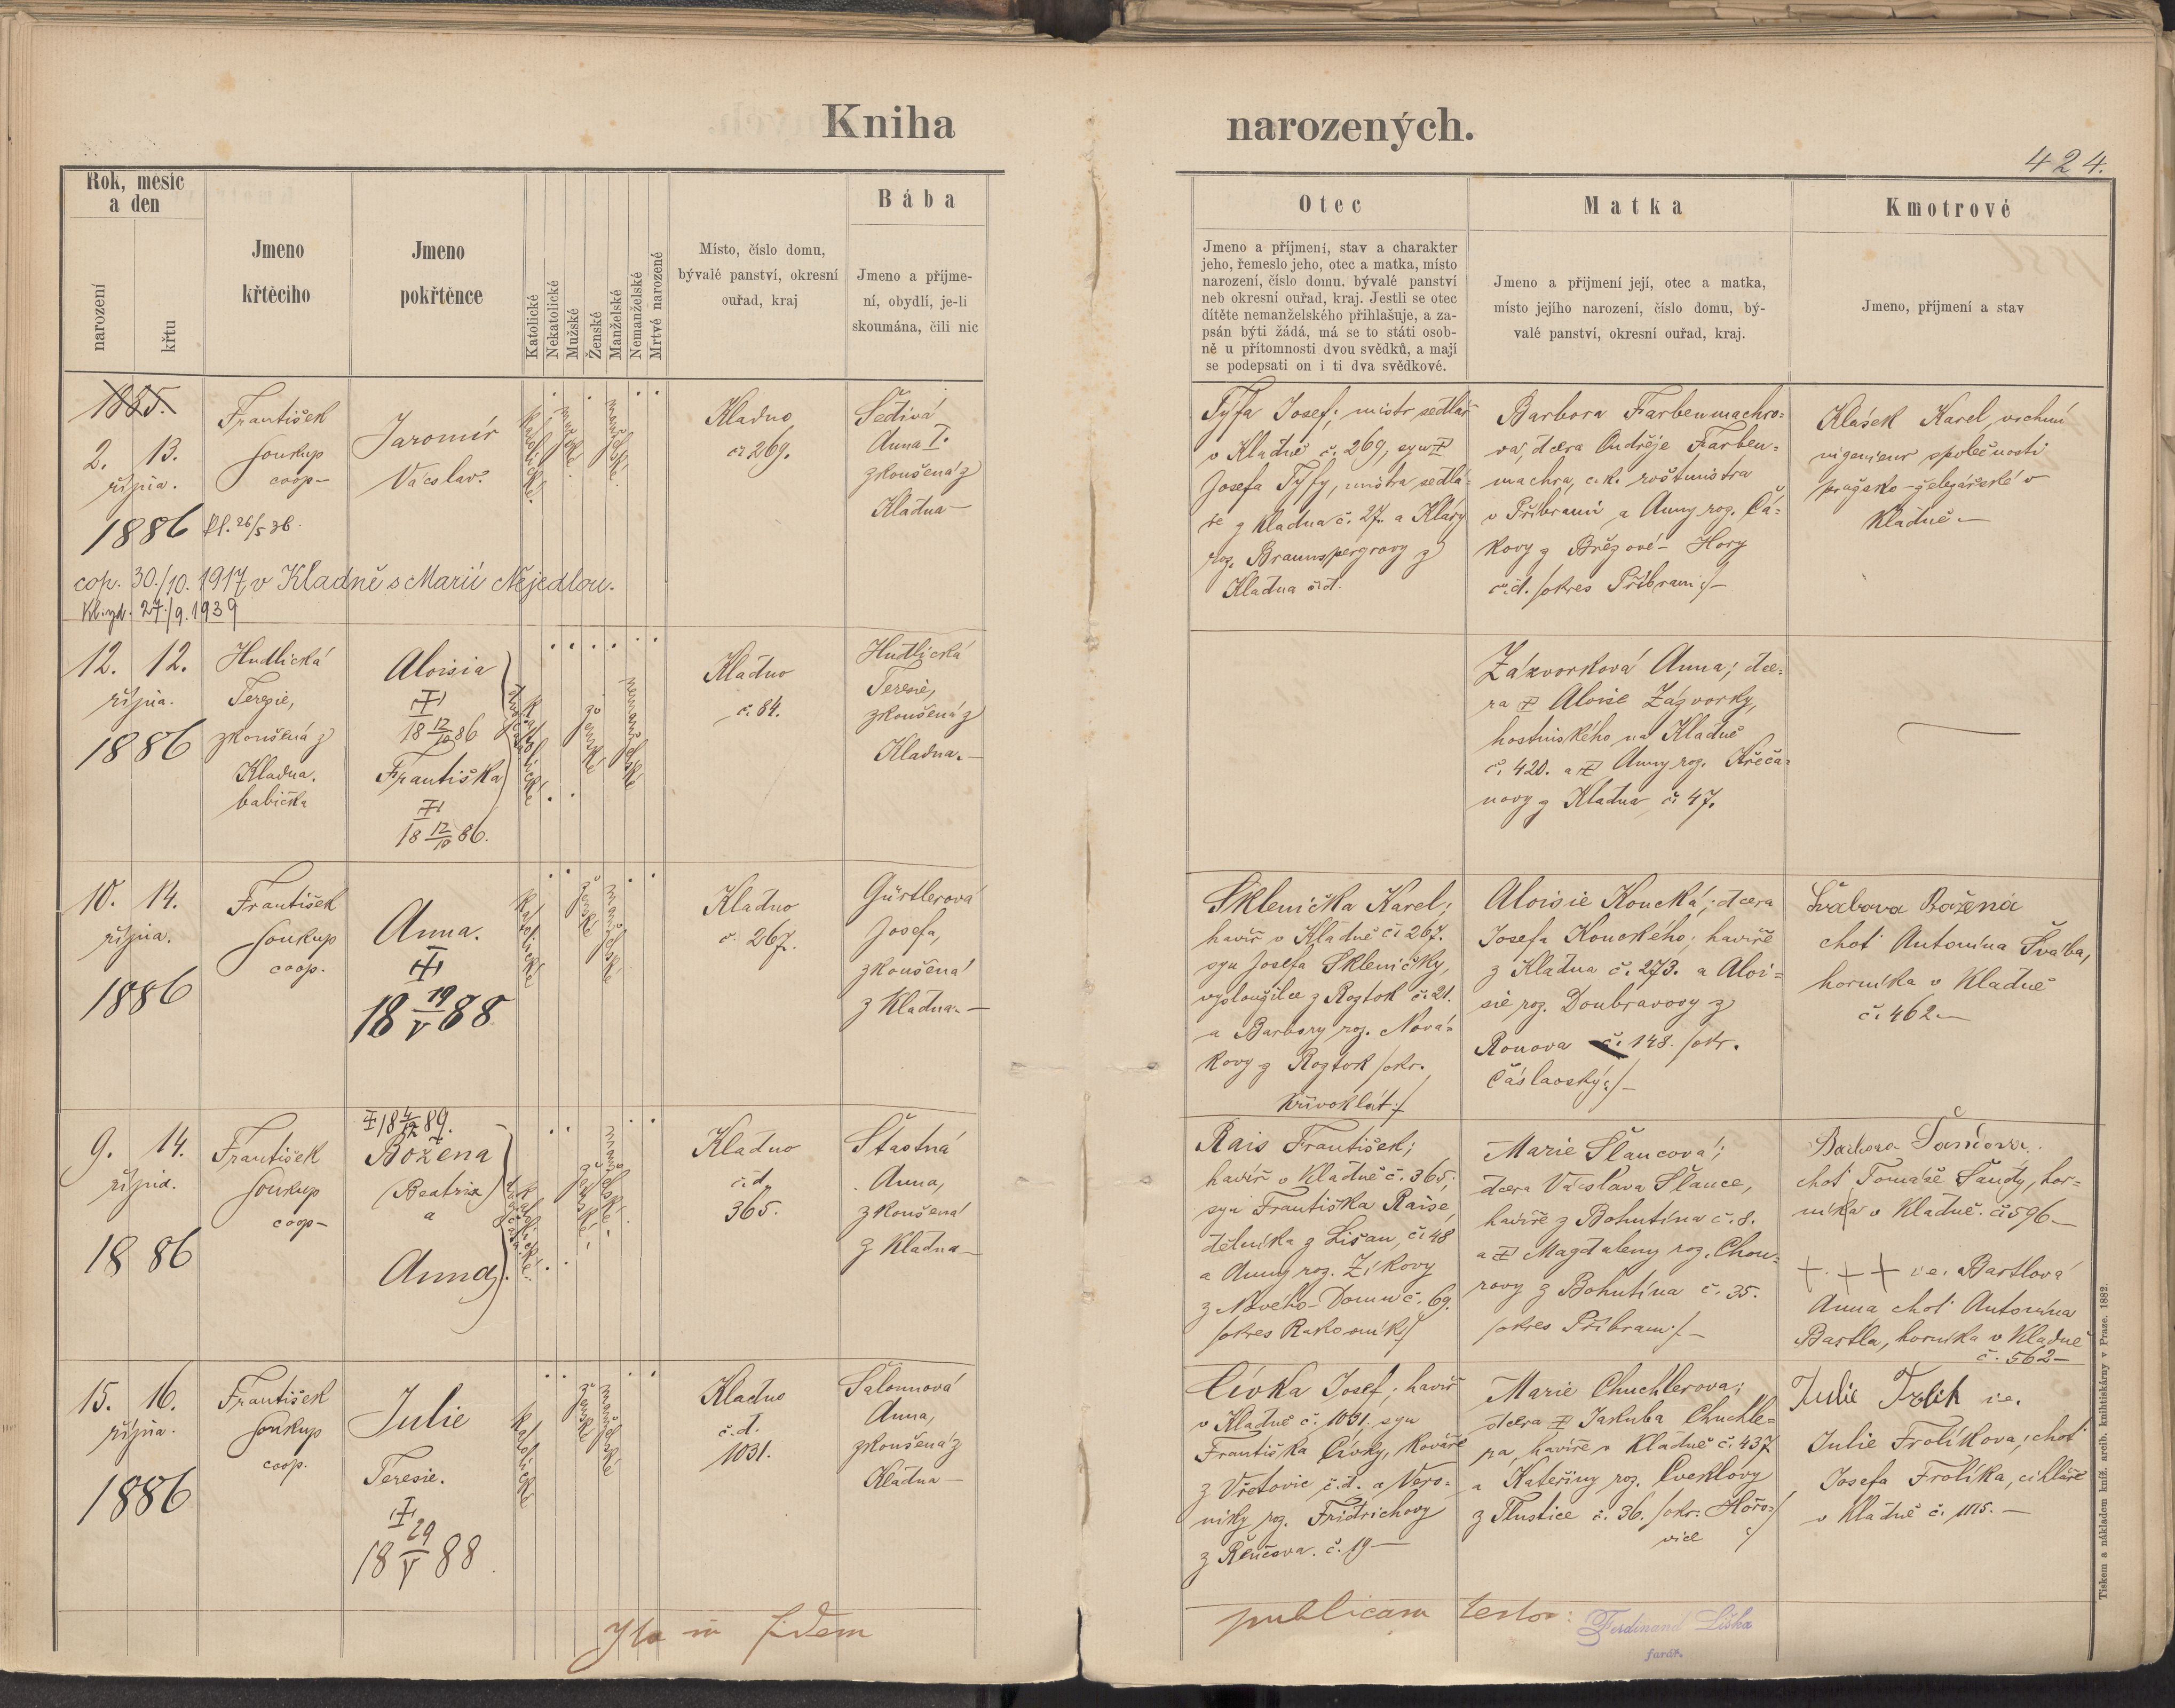 Kniha narozených.
424.
Rok, měsíc
a den
narození
křtu
Jmeno
křtěcího
Jmeno
pokřtěnce
Katolické
Nekatolické
Mužské
Ženské
Manželské
Nemanželské
Mrtvé narozené
Místo, číslo domu,
bývalé panství, okresní
ouřad, kraj
Bába
Jmeno a příjme-
ní, obydlí, je-li
skoumána, čili nic
Otec
Jmeno a příjmení, stav a charakter
jeho, řemeslo jeho, otec a matka, místo
narození, číslo domu. bývalé panství
neb okresní ouřad, kraj. Jestli se otec
dítěte nemanželského přihlašuje, a za-
psán býti žádá, má se to státi osob-
ně u přítomnosti dvou svědků, a mají
se podepsati on i ti dva svědkové.
Matka
Jmeno a přijmení její, otec a matka,
místo jejího narození, číslo domu, bý-
valé panství, okresní ouřad, kraj.
Kmotrové
Jmeno, příjmení a stav
1885.
2. 13.
října.
1886
František
Soukup
coop-
kř. 26/5 36.
Jaromír
Václav.
katolické
mužské
manželské
Kladno
čž 269.
Šedivá
Anna I.
zkoušená z
Kladna-
Tyfa Josef; mistr sedlář
v Kladně č. 269, syn
Josefa Tyfy, mistra sedlá-
ře z Kladna č. 27. a Kláry
roz. Braunspergrovy z
Kladna čd.
Barbora Farbenmachro-
vá, dcera Ondřeje Farben-
machra, c.k. roštmistra
v Příbrami a Anny roz. Čá-
kovy z Březové-Hory
č.d. /okres Příbram/-
Klásek Karel, vrchní
ingenieur společnosti
pražsko-železářské v
Kladně.-
cop. 30./10. 1917 v Kladně s Marií Nejedlou.
Kl. zd. 27./9. 1939
12. 12.
října.
1886
Hudlická
Terezie,
zkoušená z
Kladna.
babička
Aloisia
18 12/10 86
Františka
18 12/10 86.
dvojčata
katolické
ženské
nemanželské
Kladno
č. 84.
Hudlická
Teresie,
zkoušená z
Kladna.-
Zázvorková Anna; dce-
ra Aloise Zázvorky,
hostinského na Kladně
č. 420. a Anny roz. Křeča-
novy z Kladna č. 47.
10. 14.
října.
1886
František
Soukup
coop.
Anna.
18 19/V 88
katolické
ženské
manželské
Kladno
č. 267.
Gürtlerová
Josefa,
zkoušená
z Kladna.-
Sklenička Karel;
havíř v Kladně č. 267.
syn Josefa Skleničky,
vysloužilce z Roztok č. 21.
a Barbory roz. Nová-
kovy z Roztok /okr.
Křivoklát:/
Aloisie Koucká; dcera
Josefa Kouckého, havíře
z Kladna č. 273. a Aloi-
sie roz. Doubravovy z
Ronova č. 148. /okr.
Čáslavský:/-
Švábova Božena
choť Antonína Švába,
horníka v Kladně
č. 462.-
9. 14.
října.
1886
František
Soukup
coop-
18 4/12 89.
Božena
(Beatrix)
a
Anna.
dvojčata
katolické
ženské
manželské
Kladno
čd.
365.
Šťastná
Anna,
zkoušená
z Kladna-
Rais František;
havíř v Kladně č. 365,
syn Františka Raise,
dělníka z Lišan, č. 48
a Anny roz. Zíkovy
z Nového-Domu č. 69.
/okres Rakovník/
Marie Šlancová;
dcera Václava Šlance,
havíře z Bohutína č. 8.
a Magdaleny roz. Chou-
rovy z Bohutína č. 35.
/okres Příbram:/-
Barbora Šandova
choť Tomáše Šandy, hor-
níka v Kladně. č. 596-
+ + + i.e. Bartlová
Anna choť Antonína
Bartla, horníka v Kladně
č. 562-
15. 16.
října.
1886
František
Soukup
coop.
Julie
Teresie.
18 29/V 88
katolické
ženské
manželské
Kladno
č.d.
1031.
Šalomnová
Anna,
zkoušená z
Kladna-
Cívka Josef; havíř
v Kladně č. 1031. syn
Františka Cívky, kováře
z Vřetovic č.d. a Vero-
niky roz. Fridrichovy
z Řenčova. č. 19-
Marie Chuchlerova;
dcera Jakuba Chuchle-
ra, havíře v Kladně č. 437
a Kateřiny roz. Cveklovy
z Tlustice č. 36. /okr. Hořo-
vice:/
Julie Frolík i.e.
Julie Frolíkova; choť
Josefa Frolíka, cihláře
v Kladně č. 1115.-
in fidem publicam testor:
Ferdinand Liška
farář.
Tiskem a nákladem kníž. arcib. knihtiskárny v Praze. 1882.